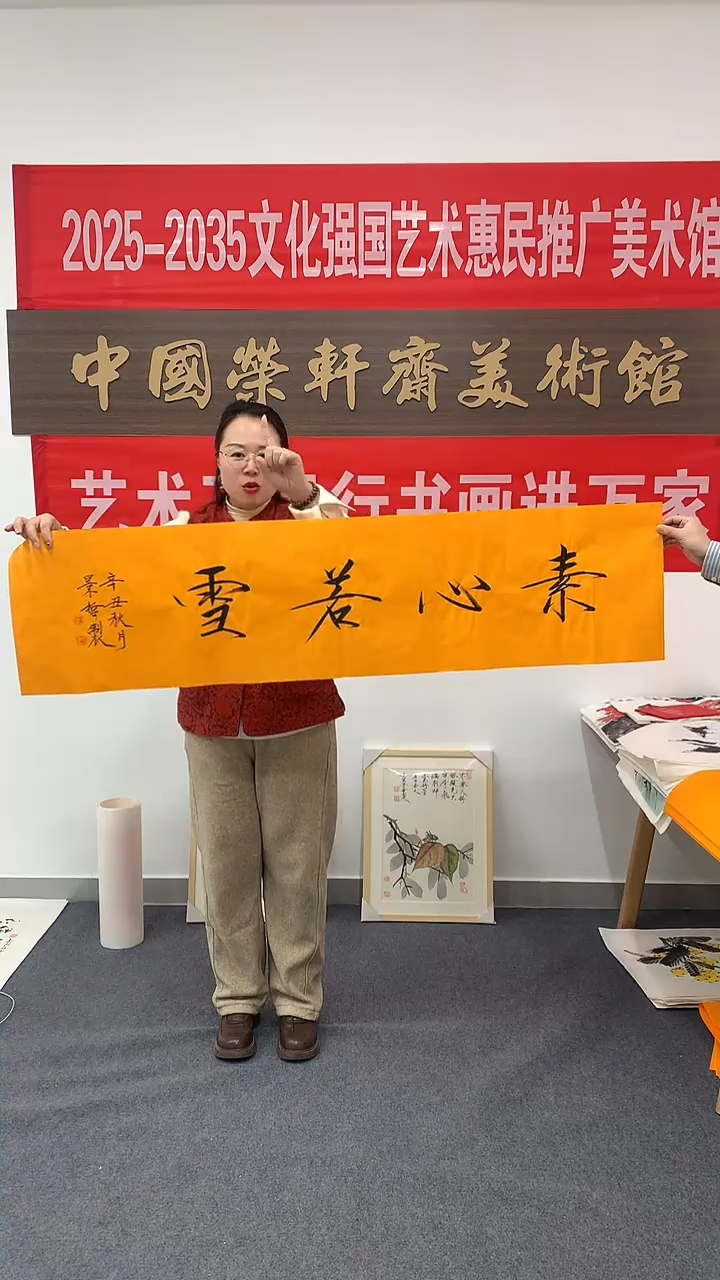 2025-2035文化强国艺术惠民推广美术馆
中國榮軒齋美術館
艺术 行书画进万家
素心若雪
辛丑秋月
景哲製